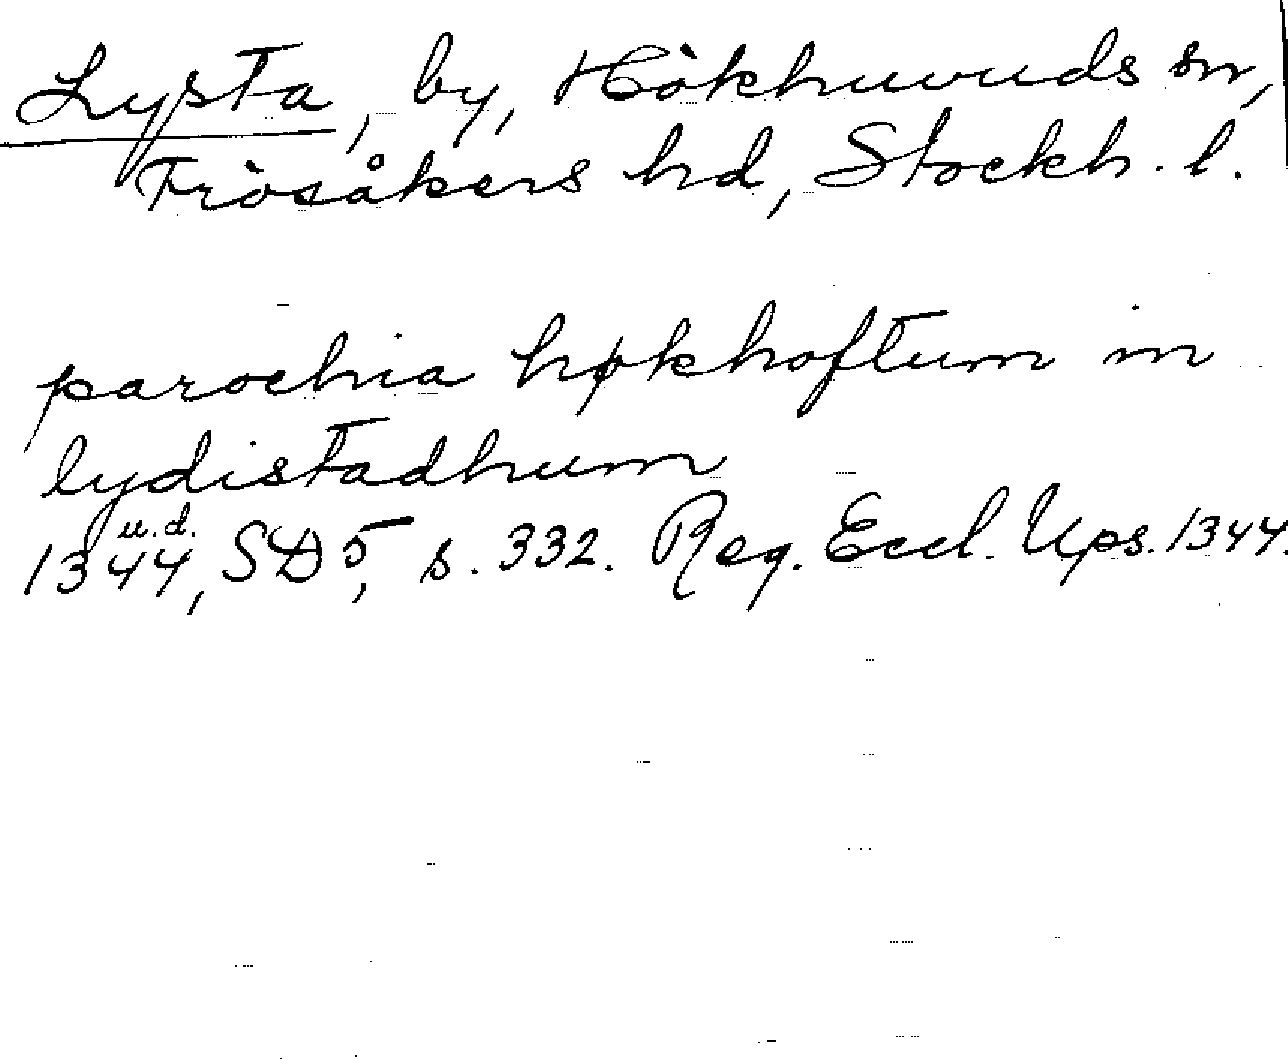 Lysta, by, Hökhuvuds sn,
Frösåkers hd, Stockh. l.
parochia høkhoftum in
lydistadhum
u.d.
1344, SD 5, s. 332. Reg. Eccl. Ups. 1344.